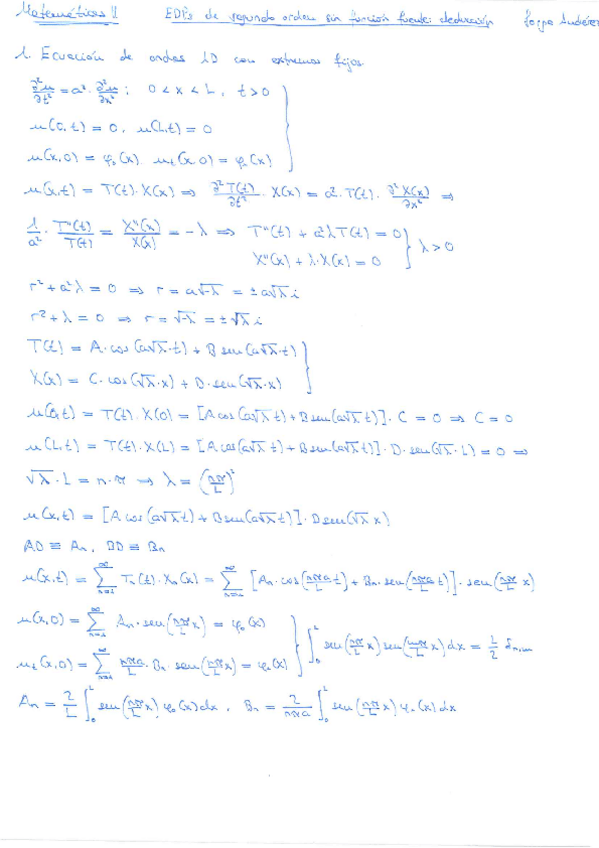 Matemáticas II EDPs de segundo orden sin función fuente: deducción Jorge
1. Ecuación de ondas 1D con extremos fijos
∂²u/∂t² = a² · ∂²u/∂x² ; 0 < x < L, t > 0
u(0,t) = 0, u(L,t) = 0
u(x,0) = φ₀(x), uₜ(x,0) = φ₁(x)
u(x,t) = T(t)·X(x) ⇒ ∂²T(t)/∂t² · X(x) = a² · T(t) · ∂²X(x)/∂x² ⇒
1/a² · T''(t)/T(t) = X''(x)/X(x) = -λ ⇒ T''(t) + a²λT(t) = 0
X''(x) + λ·X(x) = 0 } λ > 0
r² + a²λ = 0 ⇒ r = a√-λ = ± a√λ i
r² + λ = 0 ⇒ r = √-λ = ± √λ i
T(t) = A·cos(a√λ·t) + B sen(a√λ·t)
X(x) = C·cos(√λ·x) + D·sen(√λ·x)
u(0,t) = T(t)·X(0) = [A cos(a√λ t) + B sen(a√λ t)]·C = 0 ⇒ C = 0
u(L,t) = T(t)·X(L) = [A cos(a√λ t) + B sen(a√λ t)]·D·sen(√λ·L) = 0 ⇒
√λ·L = n·π ⇒ λ = (nπ/L)²
u(x,t) = [A cos(a√λ t) + B sen(a√λ t)]·D sen(√λ x)
AD ≡ Aₙ, BD ≡ Bₙ
u(x,t) = ∑ₙ₌₁^∞ Tₙ(t)·Xₙ(x) = ∑ₙ₌₁^∞ [Aₙ·cos(nπa/L t) + Bₙ·sen(nπa/L t)]·sen(nπ/L x)
u(x,0) = ∑ₙ₌₁^∞ Aₙ·sen(nπ/L x) = φ₀(x)
uₜ(x,0) = ∑ₙ₌₁^∞ nπa/L · Bₙ·sen(nπ/L x) = φ₁(x) } ∫₀^L sen(nπ/L x) sen(mπ/L x) dx = L/2 δₙ,ₘ
Aₙ = 2/L ∫₀^L sen(nπ/L x) φ₀(x) dx, Bₙ = 2/nπa ∫₀^L sen(nπ/L x) φ₁(x) dx